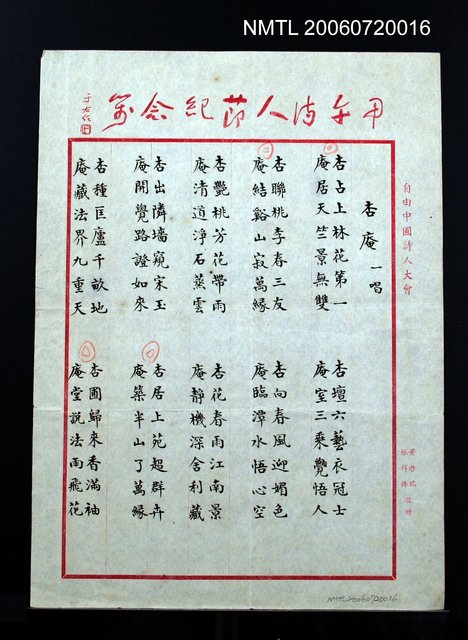 NMTL 20060720016
甲午詩人節紀念箋
于右任
自由中國詩人大會
杏庵 一唱
杏占上林花第一
庵居天竺景無雙
杏壇六藝衣冠士
庵室三乘覺悟人
杏聯桃李春三友
庵結谿山寂萬緣
杏向春風迎媚色
庵臨潭水悟心空
杏艷桃芳花帶雨
庵清道淨石蒸雲
杏花春雨江南景
庵靜機深舍利藏
杏出隣墻窺宋玉
庵開覺路證如來
杏居上苑超群卉
庵築半山了萬緣
杏種匡廬千畝地
庵藏法界九重天
杏圃歸來香滿袖
庵堂說法雨飛花
NMTL20060720016